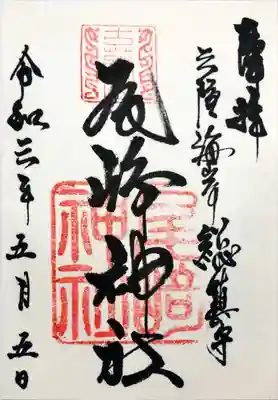 奉拝
三陸海岸総鎮守
尾崎神社
令和三年五月五日
尾崎
神社